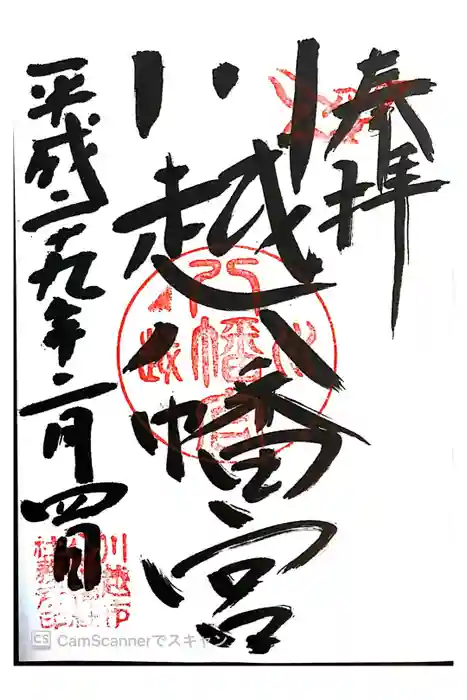 奉拝
川越八幡宮
平成二十九年二月四日
川越市
CamScannerでスキャン